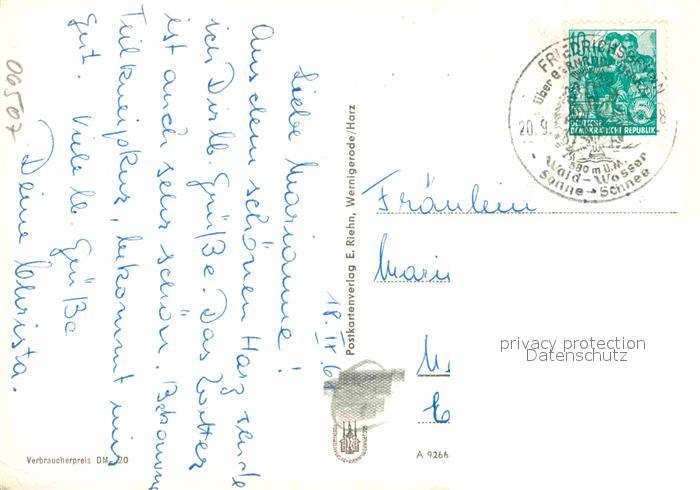 18. IX. 61
Liebe Marianne!
Aus dem schönen Harz sende
ich Dir lb. Grüße. Das Wetter
ist auch sehr schön. Bekomme
Teilkneippkur, bekommt mir
gut. Viele lb. Grüße
Deine Christa.
00507
Verbraucherpreis DM -.20
Postkartenverlag E. Riehn, Wernigerode/Harz
A 9266
Fräulein
10
DEUTSCHE
DEMOKRATISCHE REPUBLIK
FRIEDRICHSBRUNN
über
20. 9.
580 m ü. M.
Wald - Wasser
Sonne - Schnee
privacy protection
Datenschutz